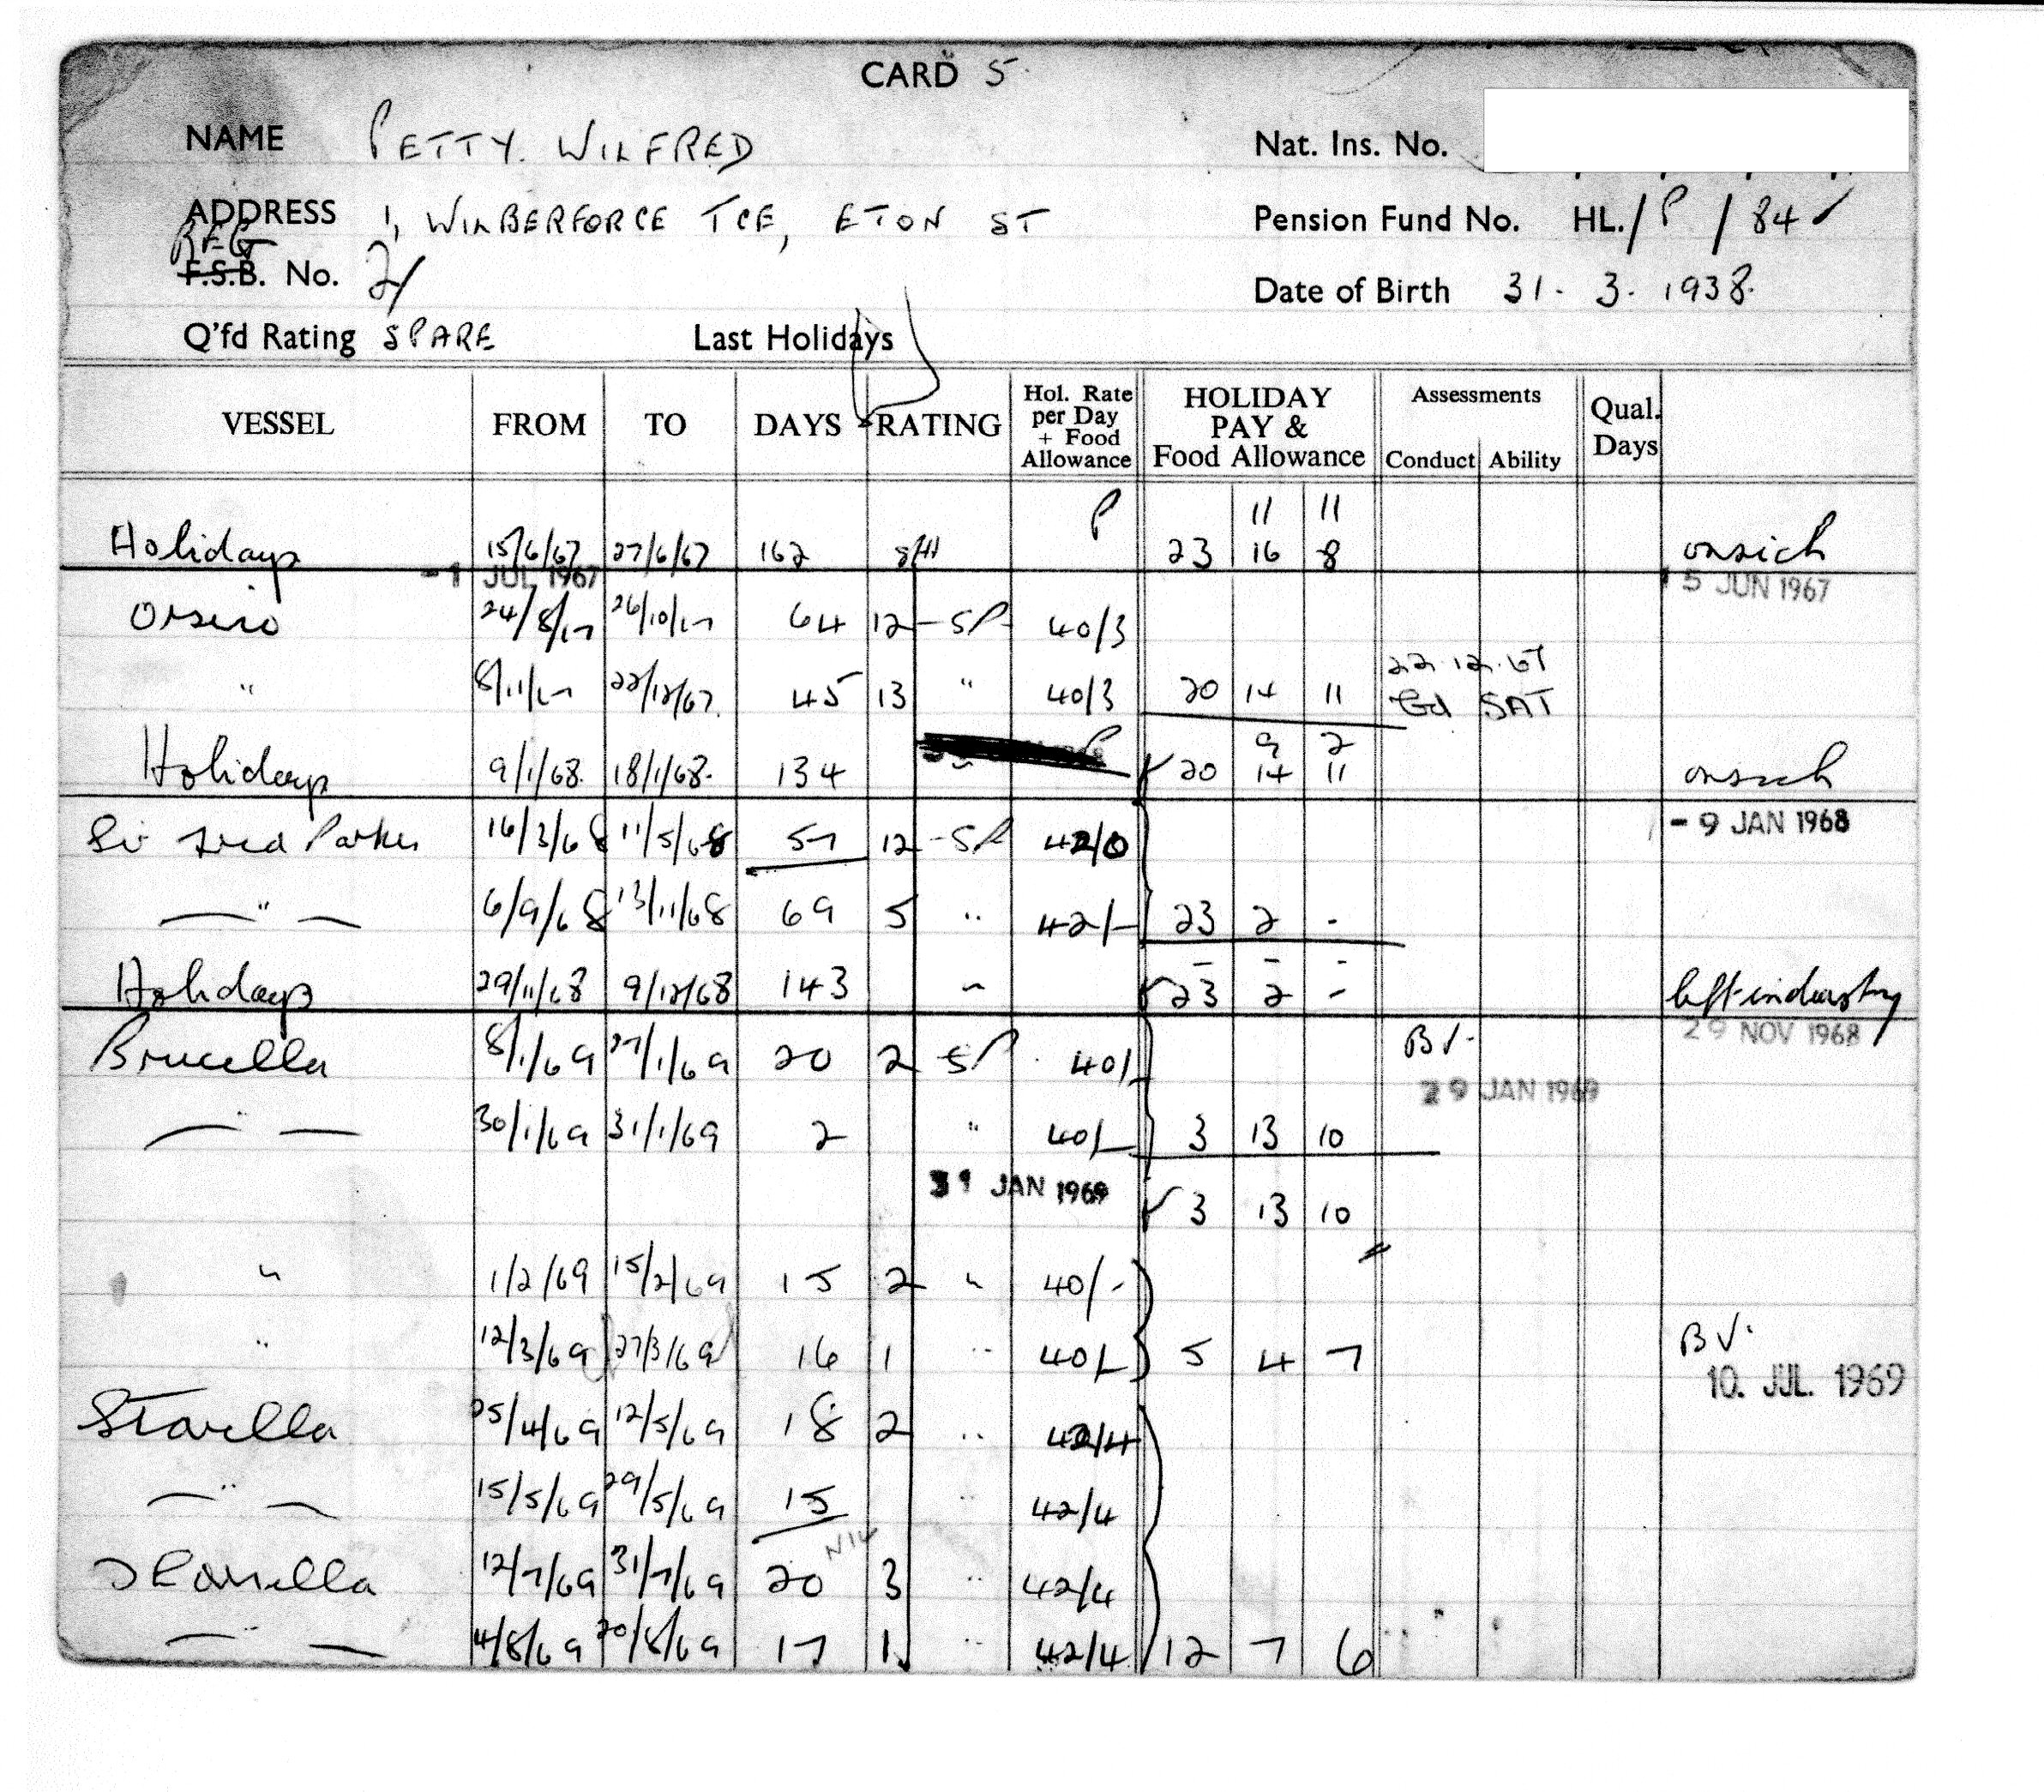 CARD 5
NAME PETTY. WILFRED Nat. Ins. No.
ADDRESS 1, WILBERFORCE TCE, ETON ST Pension Fund No. HL./P/84
REG
F.S.B. No. 21 Date of Birth 31. 3. 1938.
Q'fd Rating SPARE Last Holidays
VESSEL FROM TO DAYS RATING Hol. Rate per Day + Food Allowance HOLIDAY PAY & Food Allowance Assessments Conduct Ability Qual. Days
P 11 11
Holidays 15/6/67 27/6/67 162 23 16 8 onsick
-1 JUL 1967 15 JUN 1967
Orsino 24/8/67 26/10/67 64 12 -SP- 40/3
22.12.67
" 8/11/67 22/12/67 45 13 " 40/3 20 14 11 Gd SAT
P 9 2
Holidays 9/1/68. 18/1/68. 134 " 20 14 11 onsick
-9 JAN 1968
Sir Fred Parkes 16/3/68 11/5/68 57 12 -SP 42/0
—"— 6/9/68 13/11/68 69 5 " 42/- 23 2 -
- - -
Holidays 29/11/68 9/12/68 143 " 23 2 - left industry
29 NOV 1968
Brucella 8/1/69 27/1/69 20 2 SP 40/- BV.
29 JAN 1969
—"— 30/1/69 31/1/69 2 " 40/- 3 13 10
31 JAN 1969
3 13 10
" 1/2/69 15/2/69 15 2 " 40/-
" 12/3/69 27/3/69 16 1 " 40/- 5 4 7 BV.
10. JUL. 1969
Starella 25/4/69 12/5/69 18 2 " 42/4
—"— 15/5/69 29/5/69 15 " 42/4
NIL
Starella 12/7/69 31/7/69 20 3 " 42/4
—"— 4/8/69 20/8/69 17 1 " 42/4 12 7 6